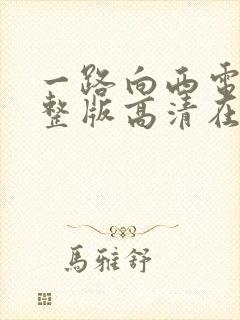 一路向西电
整版高清在
馬雅舒